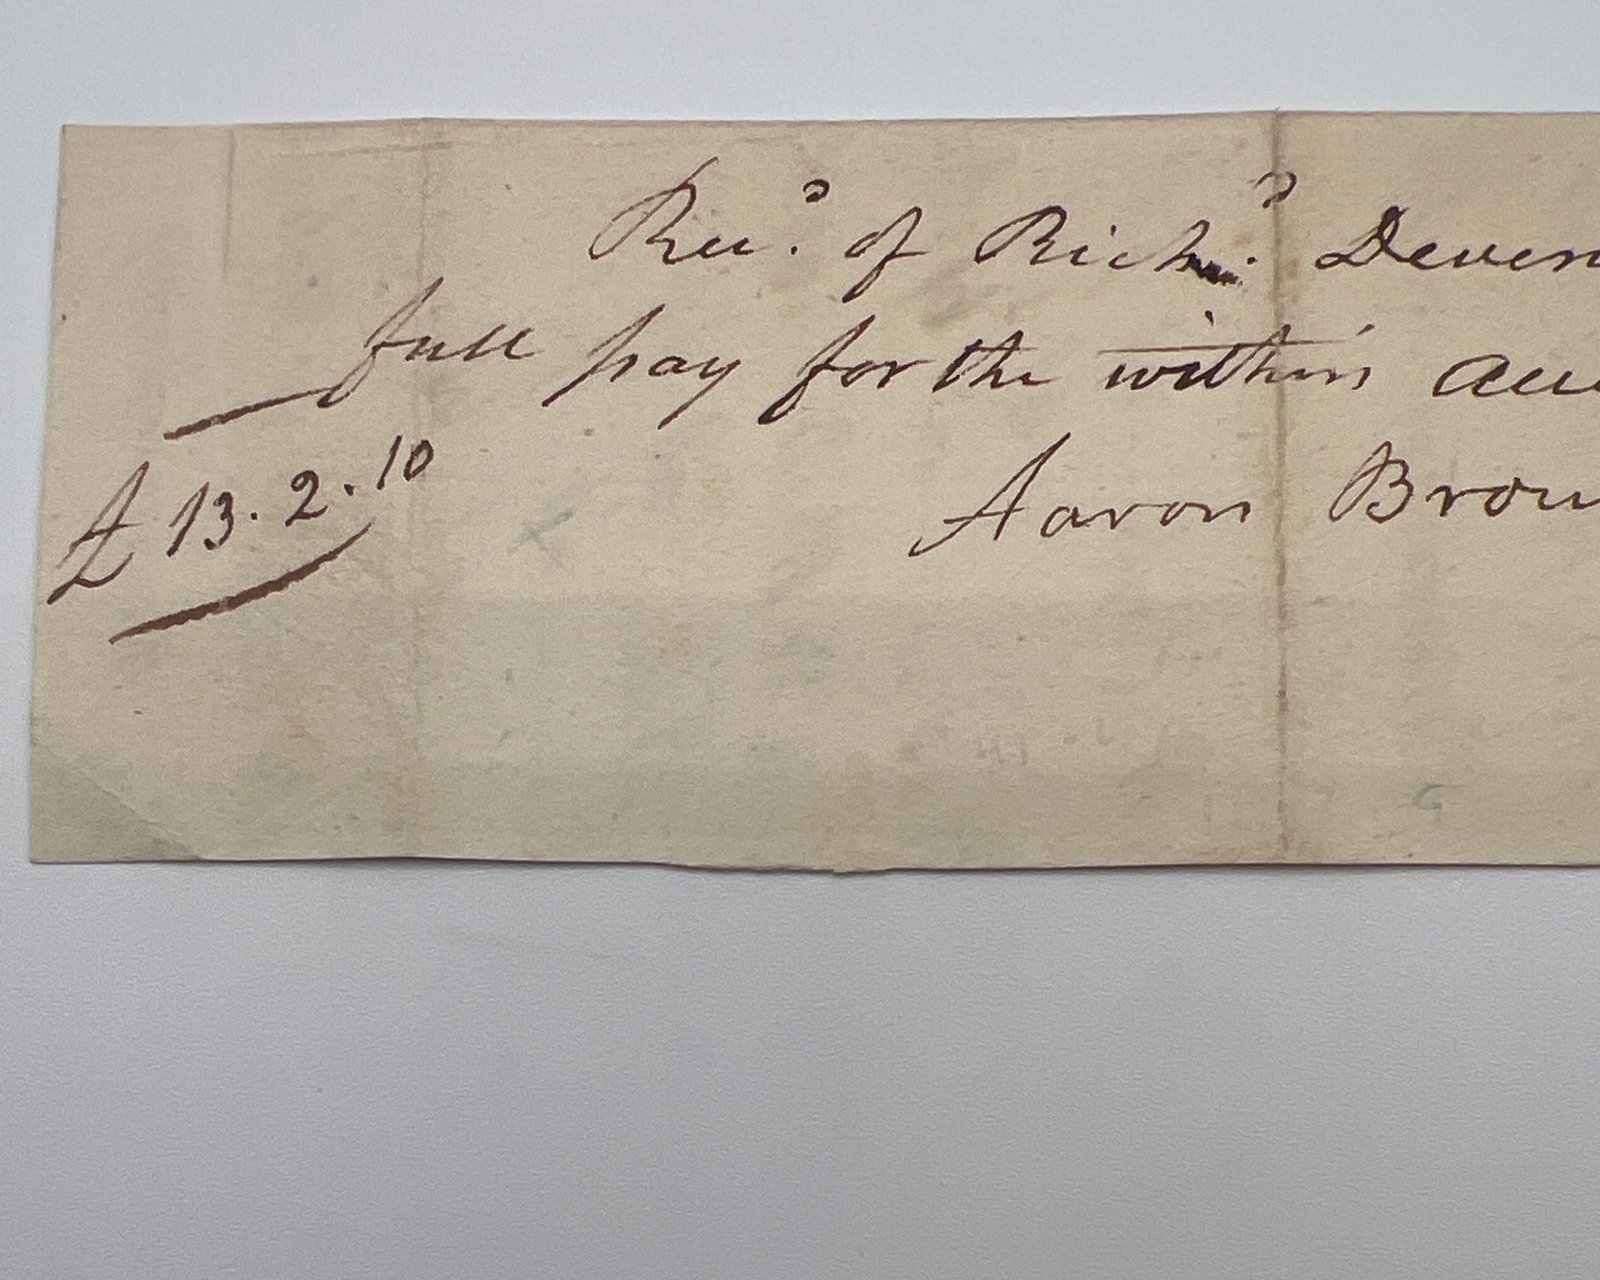 Rec.d of Rich.d Deven
full pay for the within acc
£ 13. 2. 10
Aaron Brow